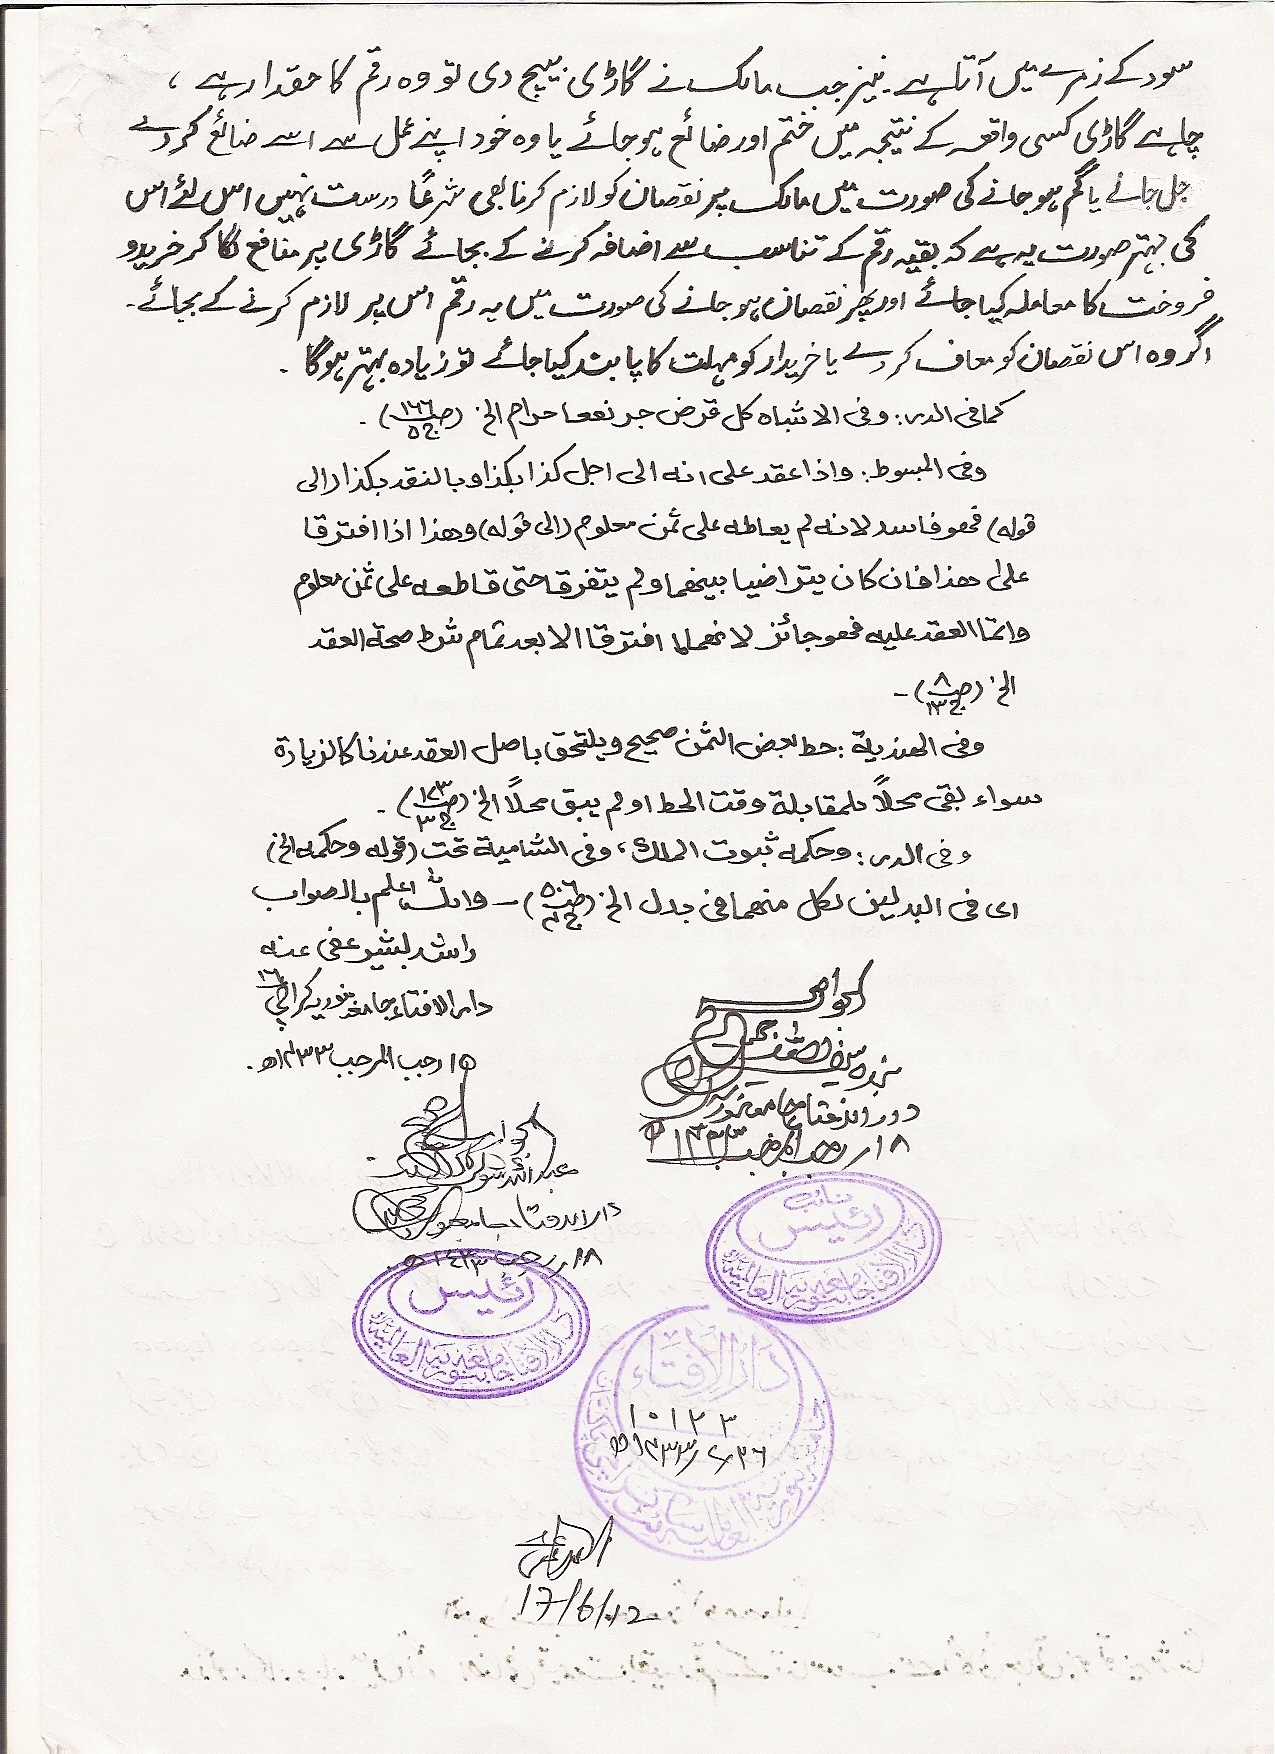 سود کے زمرے میں آتا ہے۔ نیز جب مالک نے گاڑی بیچ دی تو وہ رقم کا حقدار ہے ،
چاہے گاڑی کسی واقعہ کے نتیجہ میں ختم اور ضائع ہو جائے یا وہ خود اپنے عمل سے اسے ضائع کر دے
جل جانے یا گم ہو جانے کی صورت میں مالک پر نقصان کو لازم کرنا بھی شرعًا درست نہیں اس لئے اس
کی بہتر صورت یہ ہے کہ بقیہ رقم کے تناسب سے اضافہ کرنے کے بجائے گاڑی پر منافع لگا کر خرید و
فروخت کا معاملہ کیا جائے اور پھر نقصان ہو جانے کی صورت میں یہ رقم اس پر لازم کرنے کے بجائے ۔
اگر وہ اس نقصان کو معاف کر دے یا خریدار کو مہلت کا پابند کیا جائے تو زیادہ بہتر ہوگا ۔
کما فی الدر: وفی الاشباہ کل قرض جر نفعا حرام الخ (ص ١٦٦ ج ٥) ۔
وفی المبسوط: واذا عقد علی انہ الی اجل کذا بکذا وبالنقد بکذا (الی
قولہ) فھو فاسد لانہ لم یعاطہ علی ثمن معلوم (الی قولہ) وھذا اذا افترقا
علی ھذا فان کان یتراضیا بینھما ولم یتفرقا حتی قاطعہ علی ثمن معلوم
واتما العقد علیہ فھو جائز لانھما ما افترقا الا بعد تمام شرط صحۃ العقد
الخ (ص ٨ ج ١٣) ۔
وفی الھندیۃ: حط بعض الثمن صحیح ویلتحق باصل العقد عندنا کالزیادۃ
سواء بقی محلاً للمقابلۃ وقت الحط او لم یبق محلاً الخ (ص ١٧٣ ج ٣) ۔
وفی الدر: وحکمہ ثبوت الملک، وفی الشامیۃ تحت (قولہ وحکمہ الخ)
ای فی البدلین لکل منھما فی بدل الخ (ص ٥٠٦ ج ٤) ۔ واللہ اعلم بالصواب
راشد بشیر عفی عنہ
دار الافتاء جامعہ بنوریہ کراچی ١٦
١٥ رجب المرجب ١٤٣٣ھ ۔
الجواب صحیح
دار الافتاء جامعہ بنوریہ
١٨ رجب المرجب ١٤٣٣ھ
الجواب صحیح
دار الافتاء جامعہ بنوریہ
١٨ رجب ١٤٣٣ھ
نائب
رئیس
دار الافتاء جامعہ بنوریہ العالمیۃ
رئیس
دار الافتاء جامعہ بنوریہ العالمیۃ
دَارُ الْإِفْتَاء
١٠١٢٣
٢٦/٧/١٤٣٣ھ
17/6/12